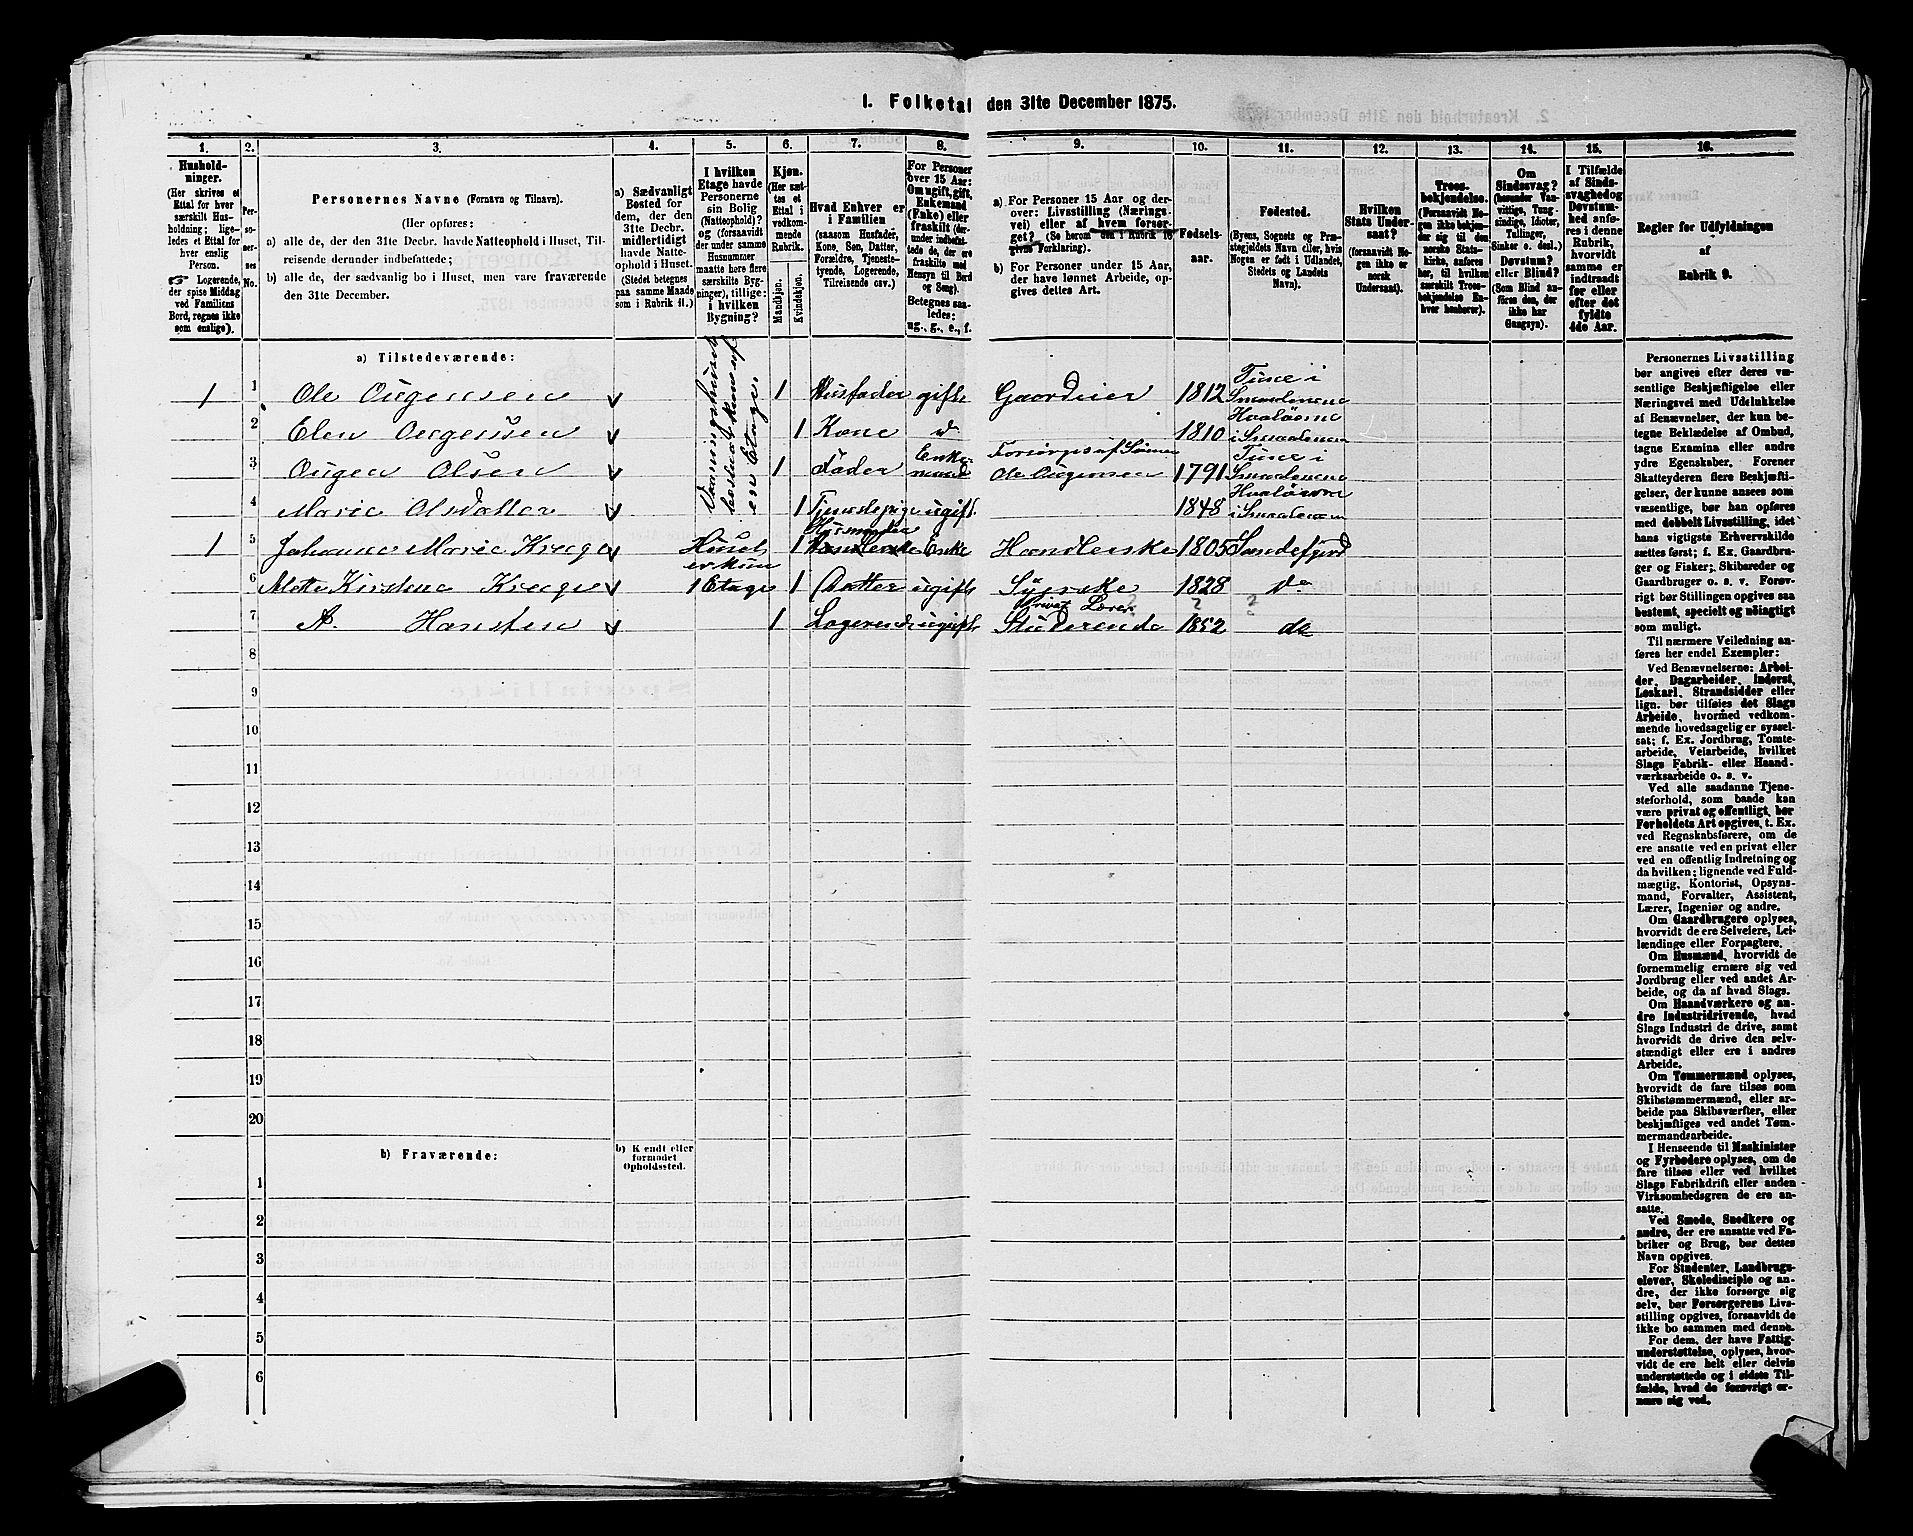 1. Folketal den 31te December 1875.
1. 2. 3. 4. 5. 6. 7. 8. 9. 10. 11. 12. 13. 14. 15. 16.
Hushold-
ninger.
(Her skrives et
Ettal for hver
særskilt Hus-
holdning; lige-
ledes et Ettal for
hver enslig
Person.
Logerende,
der spise Middag
ved Familiens
Bord, regnes ikke
som enslige).
Per-
so-
ner-
nes
No.
Personernes Navne (Fornavn og Tilnavn).
(Her opføres:
a) alle de, der den 31te Decbr. havde Natteophold i Huset, Til-
reisende derunder indbefattede;
b) alle de, der sædvanlig bo i Huset, men vare fraværende
den 31te December.
a) Sædvanligt
Bosted for
dem, der den
31te Decbr.
midlertidigt
havde Natte-
ophold i Huset.
(Stedet betegnes
paa samme Maade
som i Rubrik 11.)
I hvilken
Etage havde
Personerne
sin Bolig
(Natteophold)?
og (forsaavidt
der under samme
Husnummer
maatte høre flere
særskilte Byg-
ninger), tillige:
i hvilken
Bygning?
Kjøn.
(Her sæt-
tes et
Ettal i
vedkom-
mende
Rubrik.
Mandkjøn.
Kvindekjøn.
Hvad Enhver er
i Familien
(saasom Husfader,
Kone, Søn, Datter,
Forældre, Tjeneste-
tyende, Logerende,
Tilreisende osv.)
For Personer
over 15 Aar:
Om ugift, gift,
Enkemand
(Enke) eller
fraskilt (der-
under indbefat-
tede de, der ere
fraskilte med
Hensyn til Bord
og Seng).
Betegnes saa-
ledes:
ug., g., e., f.
a) For Personer 15 Aar og der-
over: Livsstilling (Nærings-
vei) eller af hvem forsør-
get? (Se herom den i Rubrik 16
givne Forklaring).
b) For Personer under 15 Aar,
der have lønnet Arbeide, op-
gives dettes Art.
Fødsels-
aar.
Fødested.
(Byens, Sognets og Præ-
stegjeldets Navn eller, hvis
Nogen er født i Udlandet,
Stedets og Landets
Navn).
Hvilken
Stats Under-
saat?
(forsaavidt No-
gen ikke er
norsk
Undersaat).
Troes-
bekjendelse.
(Forsaavidt No-
gen ikke bekjen-
der sig til den
norske Stats-
kirke, anføres
her, til hvilken
særskilt Troes-
bekjendelse En-
hver henhører).
Om
Sindssvag?
(herunder Van-
vittige, Tung-
sindige, Idioter,
Tullinger,
Sinker o. desl.).
Døvstum?
eller Blind?
(Som Blind an-
føres den, der
ikke har
Gangsyn).
I Tilfælde
af Sinds-
svaghed og
Døvstum-
hed anfø-
res i denne
Rubrik,
hvorvidt
samme er
indtraadt
før eller
efter det
fyldte
4de Aar.
Regler for Udfyldningen
af
Rubrik 9.
a) Tilstedeværende:
1 1 Ole Ougensen 1 Husfader gift Gaardeier 1812 Tune i Smaalenene
2 Elen Ougensen 1 Kone d 1810 Hvaløerne i Smaalenene
3 Ougen Olsen 1 Fader Enkemand Forsørges af Sønnen Ole Ougensen 1791 Tune i Smaalenene
4 Marie Olsdatter 1 Tjenestepige ugift 1848 Hvaløerne i Smaalenene
1 5 Johanne Marie Krøge Huset er kun 1 Husmoder Enke Handlerske 1805 Sandefjord
6 Mette Kirstine Krøge 1 Etage 1 Datter ugift Syerske 1828 do
7 A. Hansten 1 Logerende ugift Privat Lærer Studerende 1852 do
8
9
10
11
12
13
14
15
16
17
18
19
20
b) Fraværende:
b) Kjendt eller
formodet
Opholdssted.
1
2
3
4
5
6
Personernes Livsstilling
bør angives efter deres væ-
sentlige Beskjæftigelse eller
Næringsvei med Udelukkelse
af Benævnelser, der kun be-
tegne Beklædelse af Ombud,
tagne Examina eller andre
ydre Egenskaber. Forener
Skatteyderen flere Beskjæfti-
gelser, der kunne ansees som
væsentlige, bør han opføres
med dobbelt Livsstilling, idet
hans vigtigste Erhvervskilde
sættes først; f. Ex. Gaardbru-
ger og Fisker; Skibsreder og
Gaardbruger o. s. v. Forøv-
rigt bør Stillingen opgives saa
bestemt, specielt og nøiagtigt
som muligt.
Til nærmere Veiledning an-
føres her endel Exempler:
Ved Benævnelserne: Arbei-
der, Dagarbeider, Inderst,
Løskarl, Strandsidder eller
lign. bør tilføies det Slags
Arbeide, hvormed vedkom-
mende hovedsagelig er syssel-
sat; f. Ex. Jordbrug, Tomte-
arbeide, Veiarbeide, hvilket
Slags Fabrik- eller Haand-
værksarbeide o. s. v.
Ved alle saadanne Tjene-
steforhold, som baade kan
være privat og offentligt, bør
Forholdets Art opgives, t. Ex.
ved Regnskabsførere, om de
ere ansatte ved en privat eller
ved en offentlig Indretning og
da hvilken; lignende ved Fuld-
mægtig, Kontorist, Opsyns-
mand, Forvalter, Assistent,
Lærer, Ingeniør og andre.
Om Gaardbrugere oplyses,
hvorvidt de ere Selveiere, Lei-
lændinge eller Forpagtere.
Om Husmænd, hvorvidt de
fornemmelig ernære sig ved
Jordbrug eller ved andet Ar-
beide, og da af hvad Slags.
Om Haandværkere og an-
dre Industridrivende, hvad
Slags Industri de drive, samt
hvorvidt de drive den selv-
stændigt eller ere i andres
Arbeide.
Om Tømmermænd oplyses,
hvorvidt de fare tilsøs som
Skibstømmermænd, eller ar-
beide paa Skibsværfter, eller
beskjæftiges ved andet Tøm-
mermandsarbeide.
I Henseende til Maskinister
og Fyrbødere oplyses, om de
fare tilsøs eller ved hvilket
Slags Fabrikdrift eller anden
Virksomhedsgren de ere an-
satte.
Ved Smede, Snedkere og
andre, der ere ansatte ved Fa-
briker og Brug, bør dettes
Navn opgives.
For Studenter, Landbrugs-
elever, Skoledisciple og an-
dre, der ikke forsørge sig
selv, bør Forsørgerens Livs-
stilling opgives, forsaavidt de
ikke bo sammen med denne.
For dem, der have Fattig-
understøttelse, oplyses, hvor-
vidt de ere helt eller delvis
understøttede og i sidste Til-
fælde, hvad de forøvrigt er-
nære sig ved.